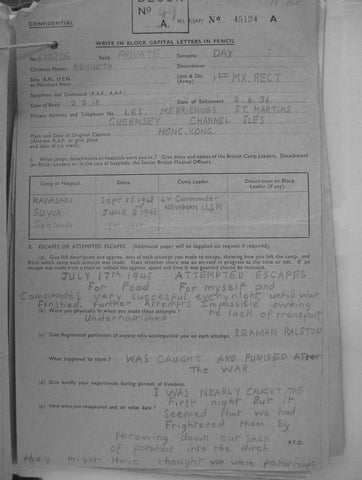 BLOCK
CONFIDENTIAL
No
A.
M.I.9/JAP/ No 45124 A
WRITE IN BLOCK CAPITAL LETTERS IN PENCIL
No. Rank PRIVATE Surname DAY
Christian Names KENNETH Decorations
Ship (R.N., U.S.N. or Merchant Navy) Unit & Div. (Army) 1ST MX. REGT
Squadron and Command (R.A.F., A.A.F.)
Date of Birth 2.2.18 Date of Enlistment 2.6.36
Private Address and Telephone No. LES MERRIENNES. ST. MARTINS
GUERNSEY CHANNEL ISLES
Place and Date of Original Capture HONG-KONG.
(Airmen R.A.F. to give place and date of a/c crash).
1. What camps, detachments or hospitals were you in? Give dates and names of the British Camp Leaders, Detachment (or Block) Leaders or, in the case of hospitals, the senior British Medical Officers.
Camp or Hospital. Dates. Camp Leader. Detachment (or Block) Leader (if any).
KAWASAKI Sept 15 1943 Lt Commander
SUVIA JUNE 5 1945 NEWMAN U.S.N
2. ESCAPES OR ATTEMPTED ESCAPES. (Additional paper will be supplied on request if required).
(a) Give full description and approx. date of each attempt you made to escape, showing how you left the camp, and from which camp each attempt was made. State whether there was an attempt in progress at the time or not. If an escape was made from a train or vehicle the approx. speed and time it was guarded should be included.
JULY 17th 1945 ATTEMPTED ESCAPES
For Food For myself and
Comorades very succesful every night until war
Finshed. further Attempts Impossible oweing
to lack of transport
(b) Were you physically fit when you made these attempts?
Undernourished
(c) Give Regimental particulars of anyone who accompanied you on each attempt. SEAMAN RALSTON
What happened to them? WAS CAUGHT AND PUNISED AFTer
THE WAR
(d) Give briefly your experiences during periods of freedom.
I WAS NEARLY CAUGHT THE
(e) How were you recaptured and on what date? First night But it
Seemed that we had
Frightened them by
throwing down our SACK
of potatoes into the ditch P.T.O.
they might Have thought we were paratroops!